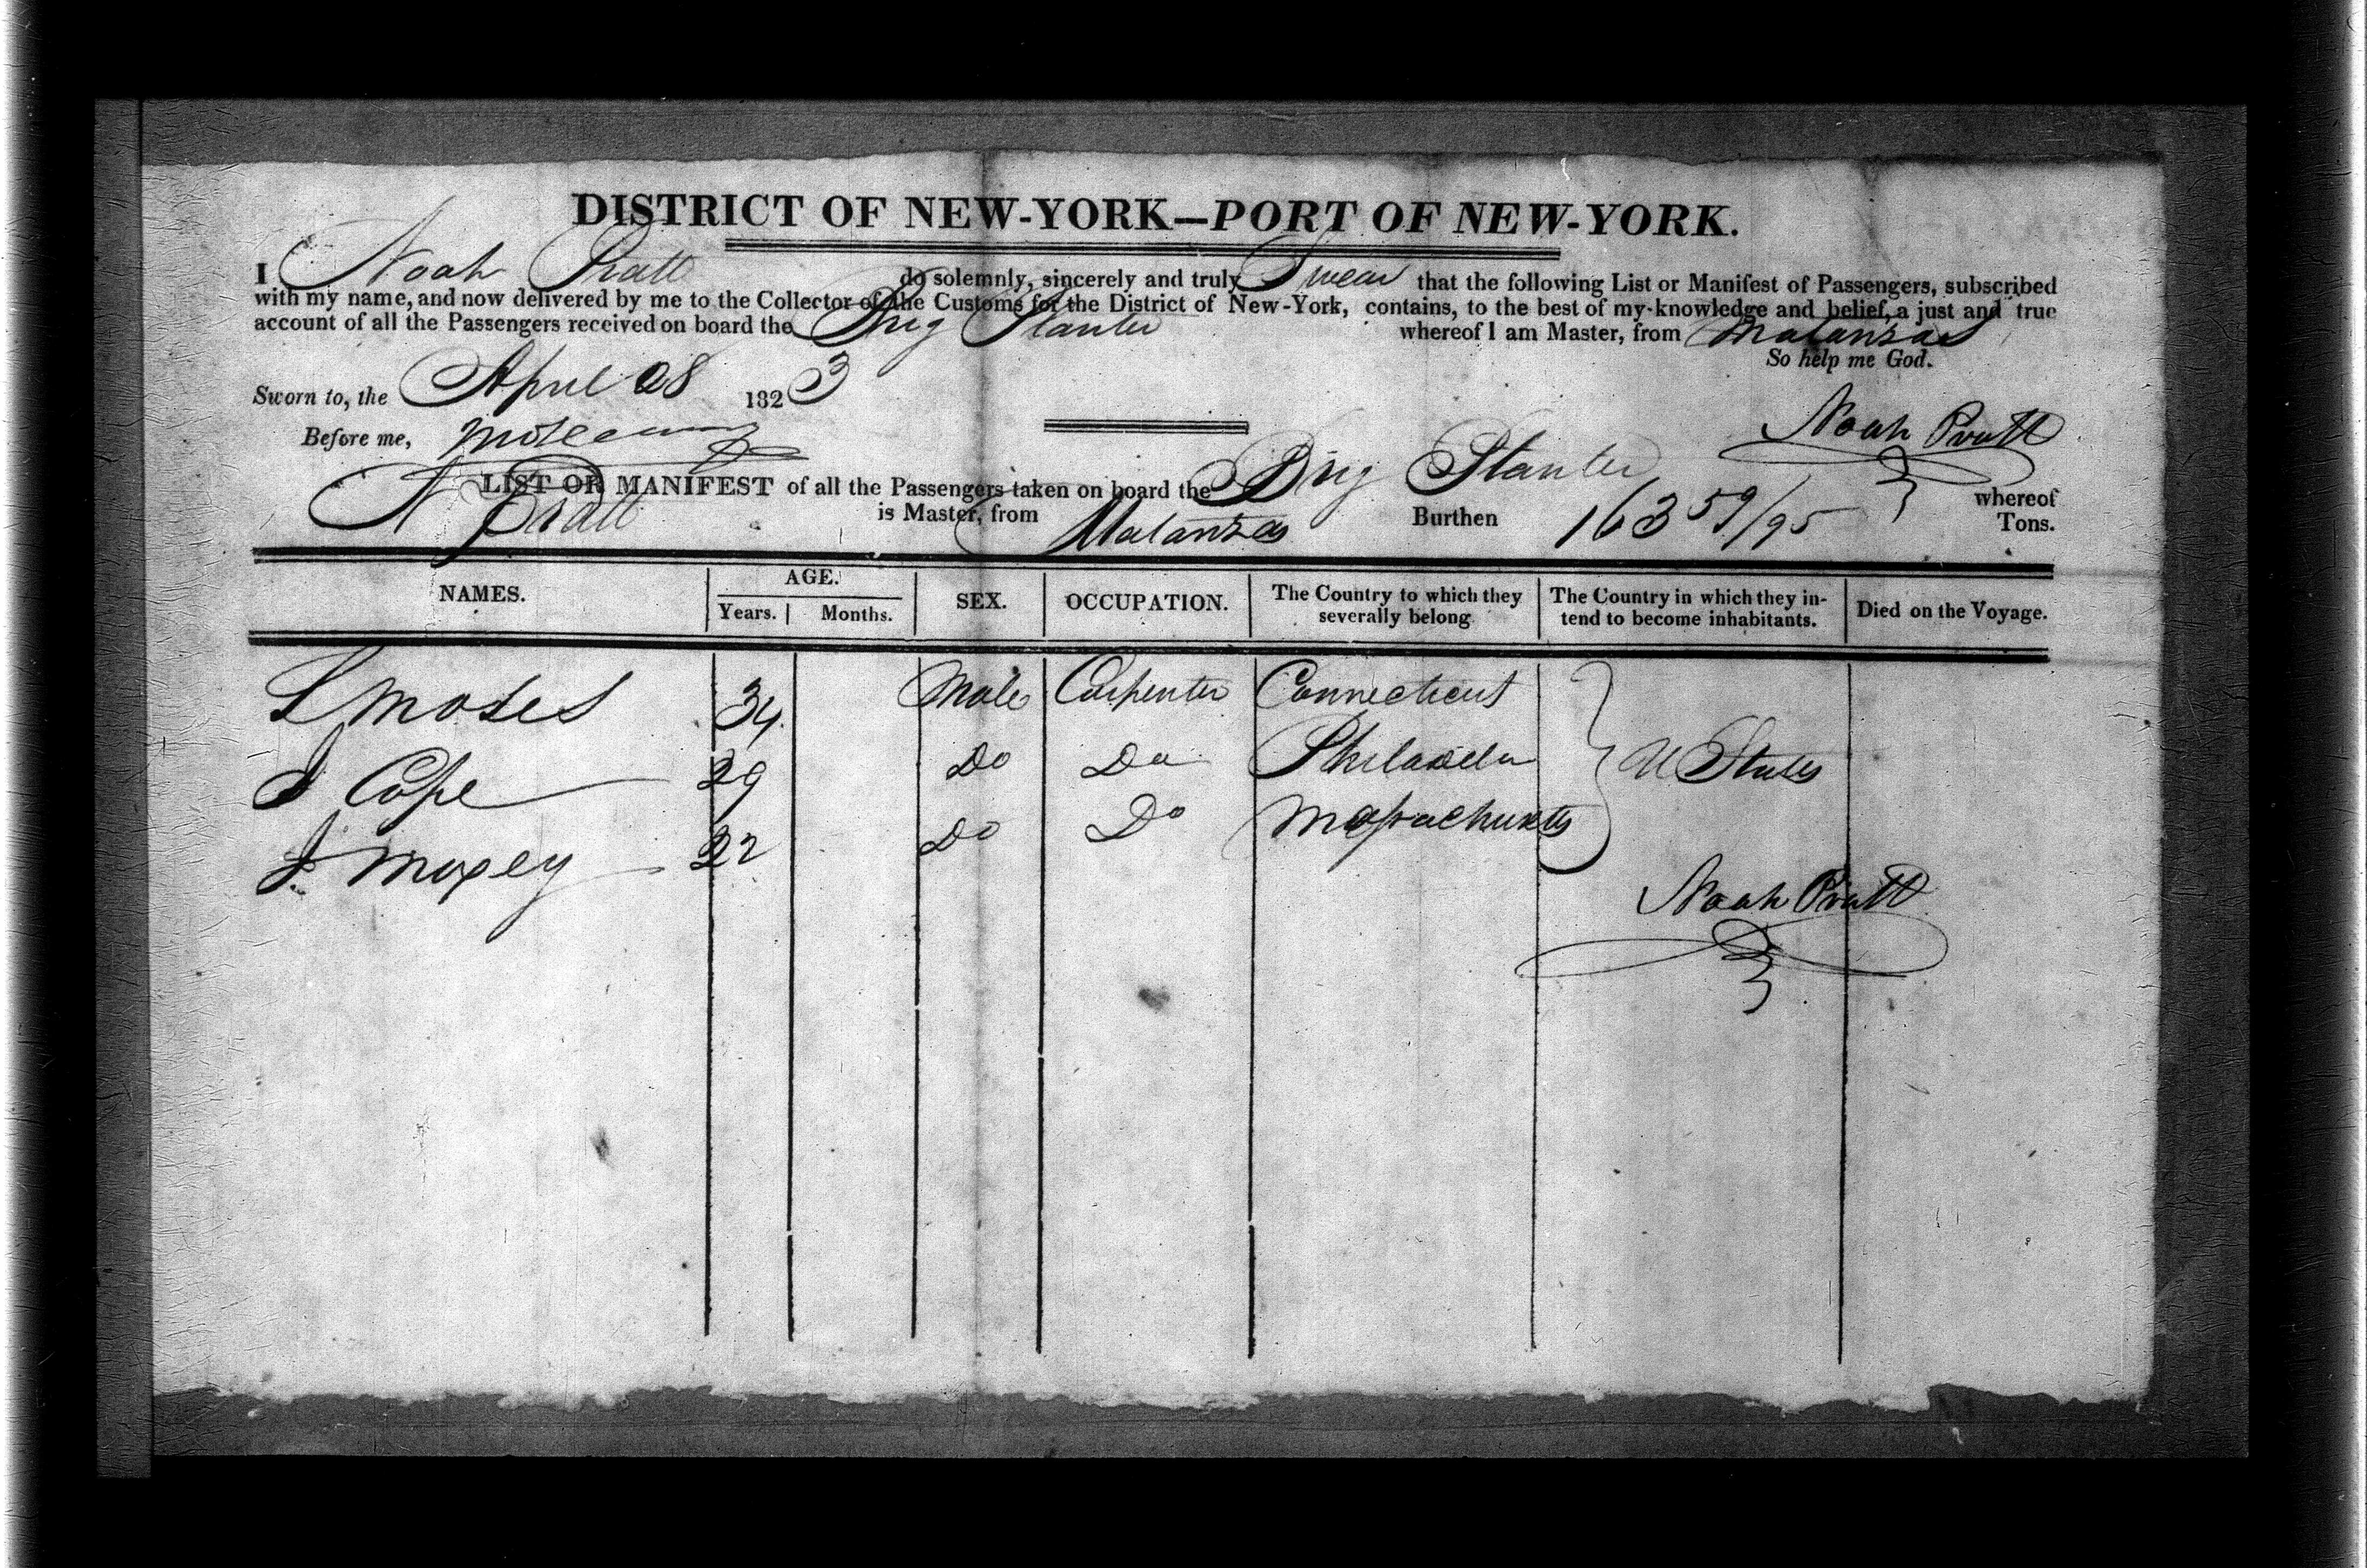 DISTRICT OF NEW-YORK—PORT OF NEW-YORK.
I Noah Pratt do solemnly, sincerely and truly Swear that the following List or Manifest of Passengers, subscribed
with my name, and now delivered by me to the Collector of the Customs for the District of New-York, contains, to the best of my knowledge and belief, a just and true
account of all the Passengers received on board the Brig Planter whereof I am Master, from Matanzas
So help me God.
Sworn to, the April 28 1823
Noah Pratt
Before me,
LIST OR MANIFEST of all the Passengers taken on board the Brig Planter whereof
N Pratt is Master, from Matanzas Burthen 163 59/95 Tons.
NAMES. AGE. Years. Months. SEX. OCCUPATION. The Country to which they severally belong The Country in which they intend to become inhabitants. Died on the Voyage.
L Moses 34 Male Carpenter Connecticut
J Cope 29 Do Do Philadela U States
J. Moxey 22 Do Do Massachusetts
Noah Pratt